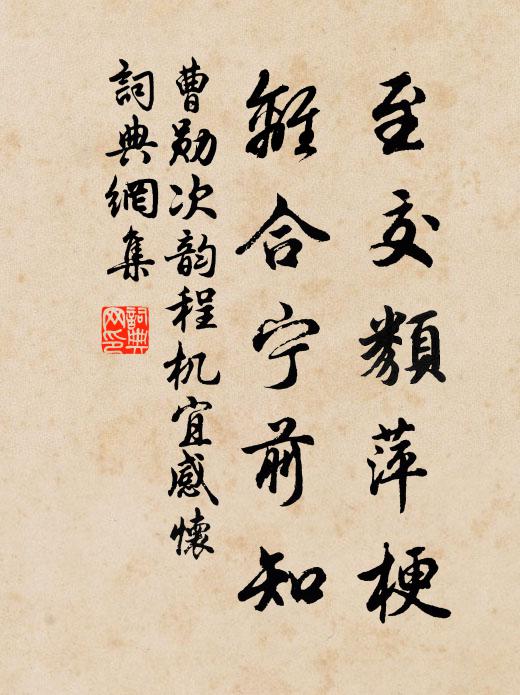 至交類萍梗
離合宁前知
曹勋次韵程机宜感懷
詞典網集
詞典
网印